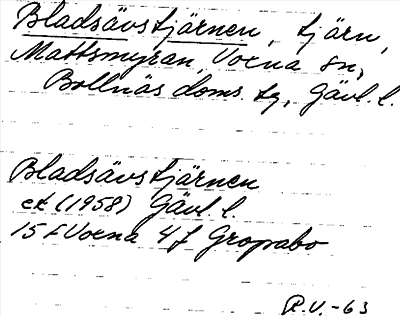 Bladsävstjärnen, tjärn,
Mattsmyran, Voxna sn,
Bollnäs doms. tg, Gävl. l.
Bladsävstjärnen
ek (1958) Gävl l.
15 F Voxna 4 f Gropabo
R.V. -63